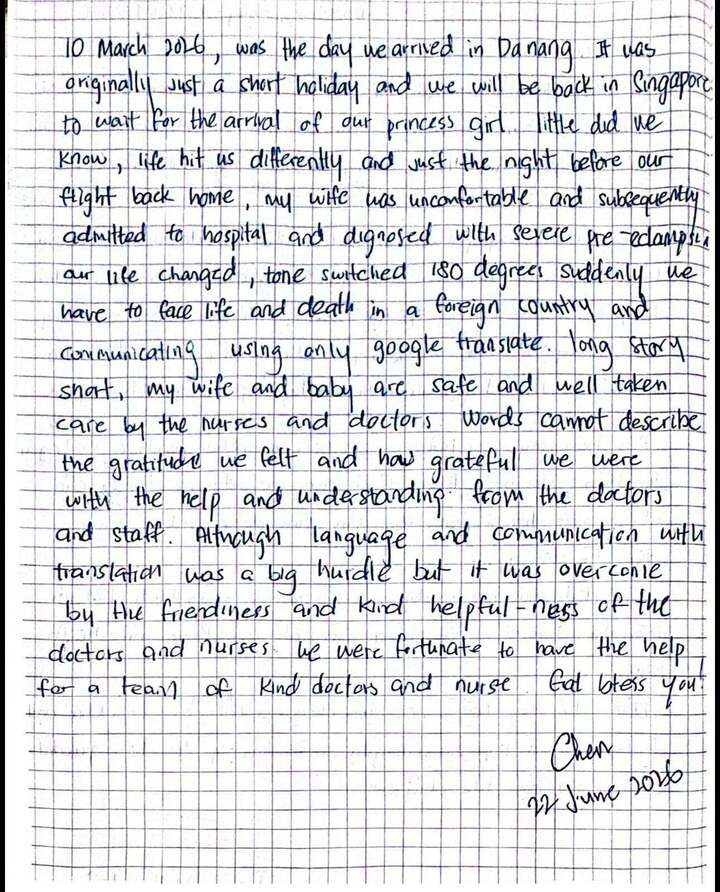 10 March 2026, was the day we arrived in Danang. It was
originally just a short holiday and we will be back in Singapore
to wait for the arrival of our princess girl. little did we
know, life hit us differently and just the night before our
flight back home, my wife was unconfortable and subsequently
admitted to hospital and dignosed with severe pre-eclampsia
our life changed, tone switched 180 degrees suddenly we
have to face life and death in a foreign country and
communicating using only google translate. long story
short, my wife and baby are safe and well taken
care by the nurses and doctors. Words cannot describe
the gratitude we felt and how grateful we were
with the help and understanding from the doctors
and staff. Although language and communication with
translation was a big hurdle but it was overcome
by the friendiness and kind helpful-ness of the
doctors and nurses. we were fortunate to have the help
for a team of kind doctors and nurse. God bless you!
Chen
22 June 2026